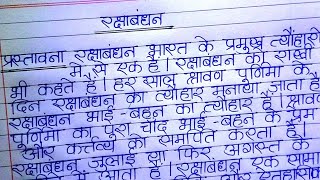 रक्षाबंधन
प्रस्तावना रक्षाबंधन भारत के प्रमुख त्यौहारों
में से एक है। रक्षाबंधन को राखी
भी कहते हैं। हर साल श्रावण पूर्णिमा के
दिन रक्षाबंधन का त्यौहार मनाया जाता है
रक्षाबंधन भाई-बहन का त्यौहार है। श्रावण
पूर्णिमा का पूरा चाँद भाई-बहन के प्रेम
और कर्त्तव्य को समर्पित करता है।
रक्षाबंधन जुलाई या फिर अगस्त के
में आता है। रक्षाबंधन एक सामा
और ऐतिहासिक